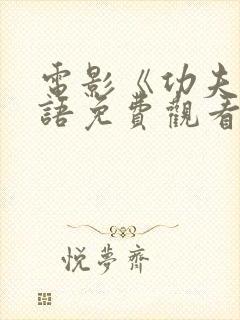 電影《功夫
語免費觀看
悦夢齋